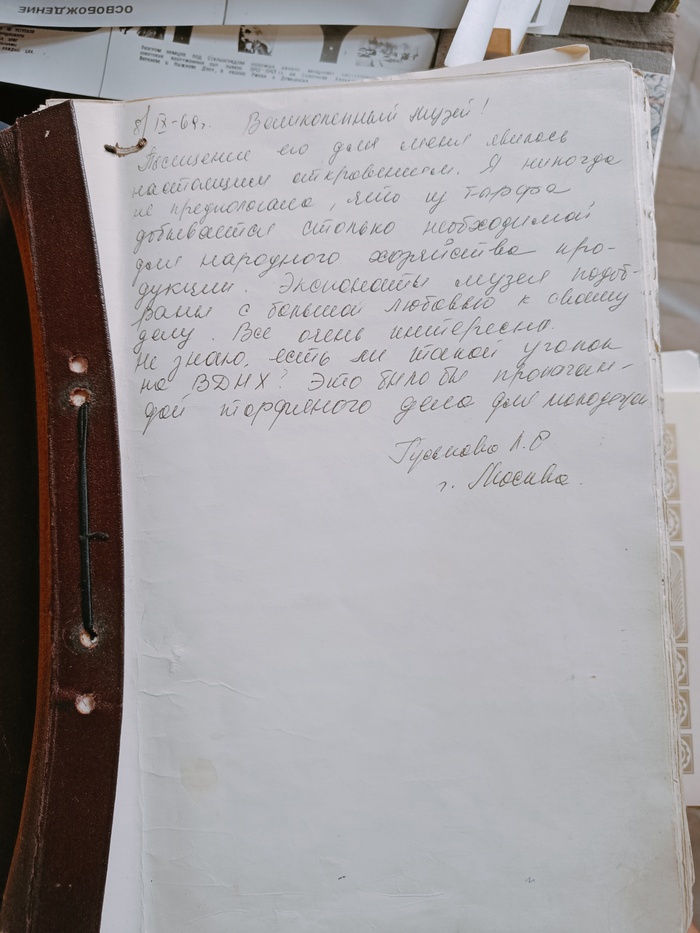 ОСВОБОЖДЕНИЕ
8/IX-69г. Великолепный музей!
Посещение его для меня явилось
настоящим откровением. Я никогда
не предполагала, что из торфа
добывается столько необходимой
для народного хозяйства про-
дукции. Экспонаты музея подоб-
раны с большой любовью к своему
делу. Все очень интересно.
Не знаю, есть ли такой уголок
на ВДНХ? Это было бы пропаган-
дой торфяного дела для молодежи
г. Москва.